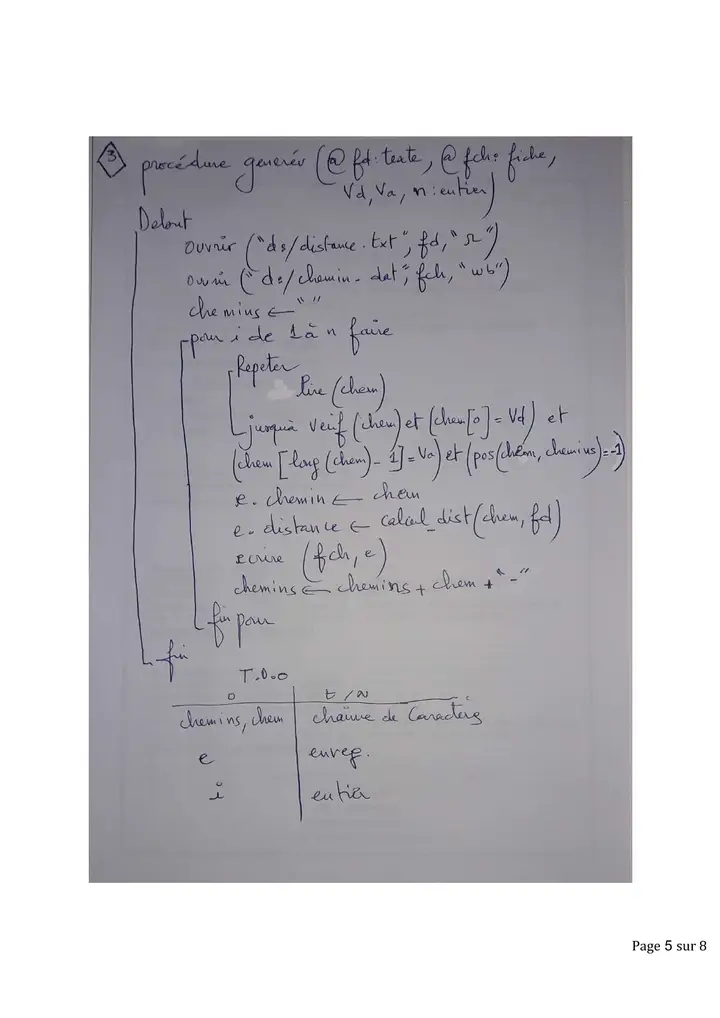 3 procédure generer (@ fd: texte, @ fch: fiche,
Vd, Va, n : entier)
Debut
ouvrir ("ds/distance.txt", fd, "r")
ouvrir ("ds/chemin.dat", fch, "wb")
chemins ← " "
pour i de 1 à n faire
Repeter
lire (chem)
jusqu'à verif (chem) et (chem[0] = Vd) et
(chem [long (chem) - 1] = Va) et (pos(chem, chemins) = -1)
e. chemin ← chem
e. distance ← calcul_dist (chem, fd)
ecrire (fch, e)
chemins ← chemins + chem + "-"
fin pour
fin
T.D.O
O | T/N
chemins, chem | chaine de caractères
e | enreg.
i | entier
Page 5 sur 8